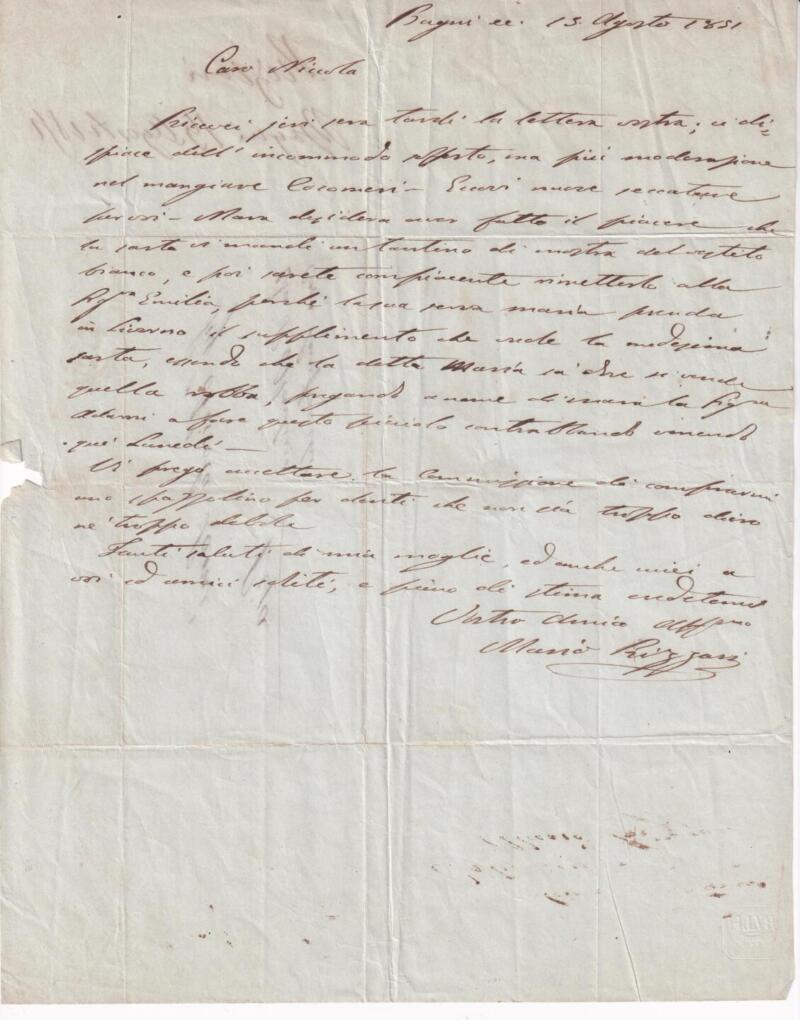 Bagni ec. 13 Agosto 1851
Caro Niccola
Ricevei jeri sera tardi la lettera vostra; ci di=
spiace dell' incommodo sofferto, ma più moderazione
nel mangiare Cocomeri — Eccovi nuove seccature
per voi — Mara desidera aver fatto il piacere che
la sarta vi mandi un tantino di mostra del vestito
bianco, e poi sarete compiacente rimetterlo alla
Sigra Emilia, perché la sua serva maria prenda
in Livorno il supplimento che vede la medesima
sarta, essendo che la detta Maria sà dove si vende
quella robba, pregando a nome di mara la Sigra
Adami a fare questo piccolo contrabbando venendo
quì Lunedì —
Vi prego accettare la Commissione di comprarmi
uno spazzolino per denti che non sia troppo duro
nè troppo debole
Tanti saluti di mia moglie, ed anche miei a
voi ed amici soliti, e pieno di stima credetemi
Vostro Amico Affmo
Mario Rizzari